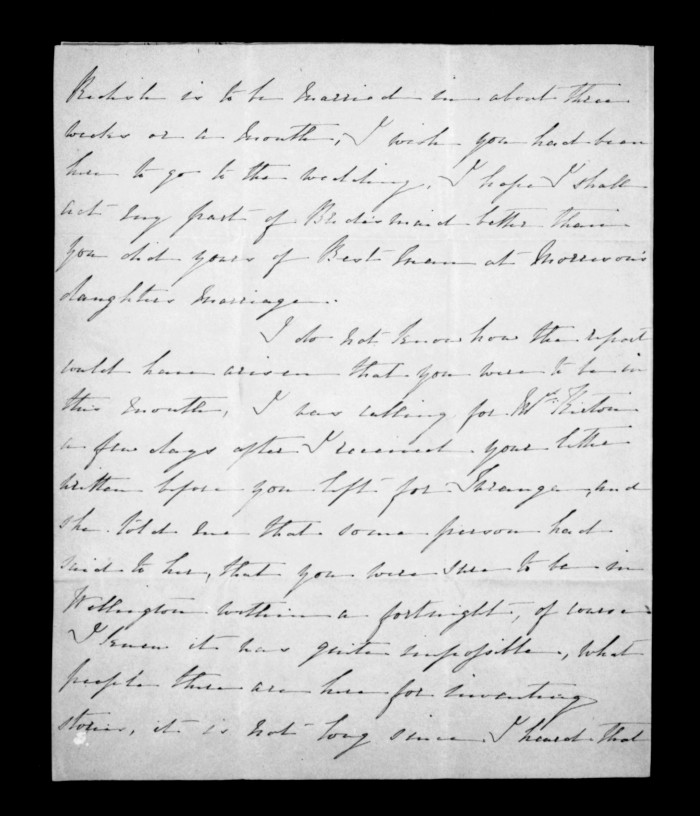 is to be married in about three
weeks or a month, I wish you had been
here to go to the wedding, I hope I shall
act my part of Bridesmaid better than
you did yours of Best Man at Morrison's
daughters marriage.
I do not know how the report
could have arisen that you were to be in
this month, I was calling for Mrs
a few days after I received your letter
written before you left for and
she told me that some person had
said to her, that you were sure to be in
Wellington within a fortnight, of course
I knew it was quite impossible, what
people there are here for inventing
stories, it is not long since I heard that